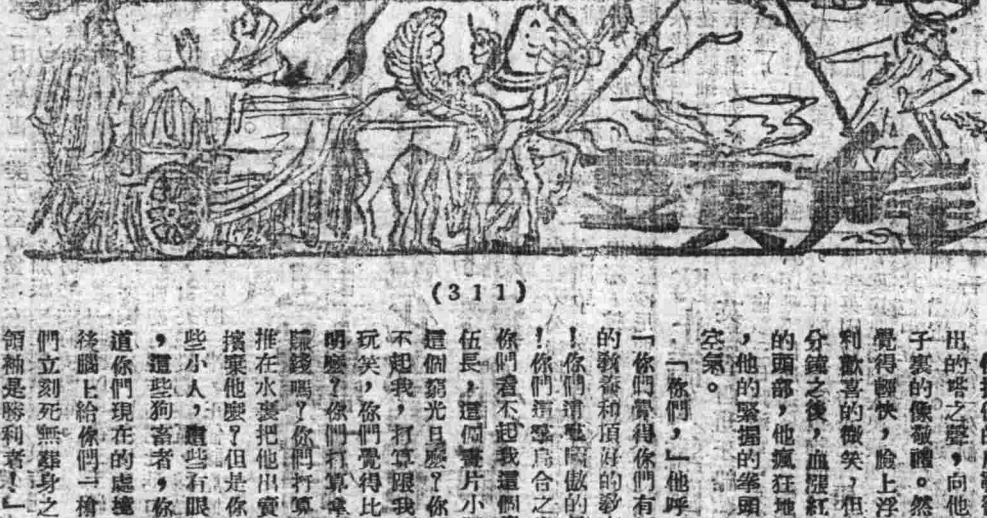 (311)
出的嗒之聲,向他
子裏的像敬禮。然
覺得輕快,臉上浮
利歡喜的微笑,但
分鐘之後,血漲紅
的頭部,他瘋狂地
,他的緊握的拳頭
空氣。
「你們,」他呼
「你們覺得你們有
的教養和頂好的教
!你們這羣驕傲的
!你們這羣烏合之
你們看不起我這個
伍長,這個畫片小
這個窮光旦麼?你
不起我,打算跟我
玩笑,你們覺得比
明麼?你們打算拿
賺錢嗎?你們打算
推在水裏把他出賣
擯棄他麼?但是你
些小人,這些有眼
,這些狗畜者,你
道你們現在的處境
後腦上給你們一槍
們立刻死無葬身之
領袖是勝利者!」